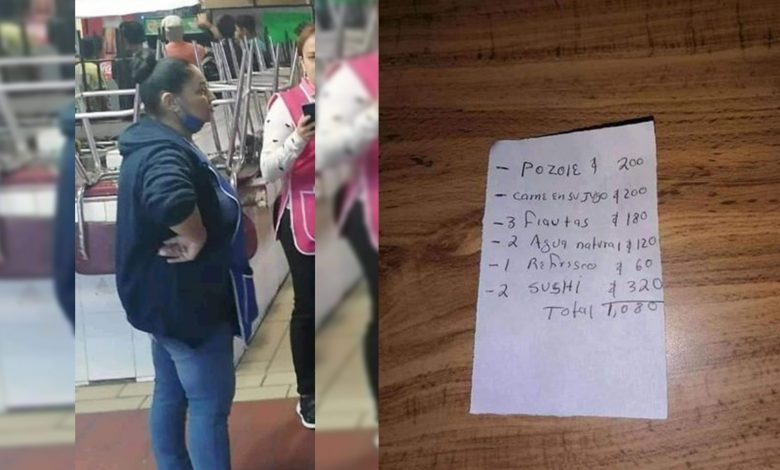 - POZOlE $ 200
- carne en su jugo $ 200
- 3 Flautas $ 180
- 2 Agua natural $ 120
- 1 Refresco $ 60
- 2 SUSHI $ 320
Total 1,080